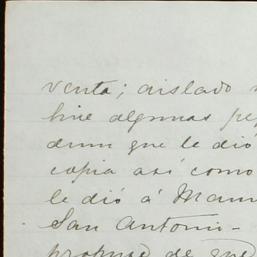 venta; aislado
hice algunas pe
drum que le dió
copia así como
le dió á Manu
San Antonio-
propuso de que